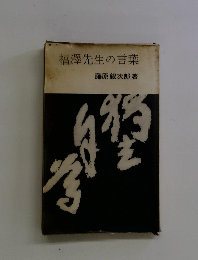 福澤先生の言葉
藤原銀次郎著
獨立
自尊